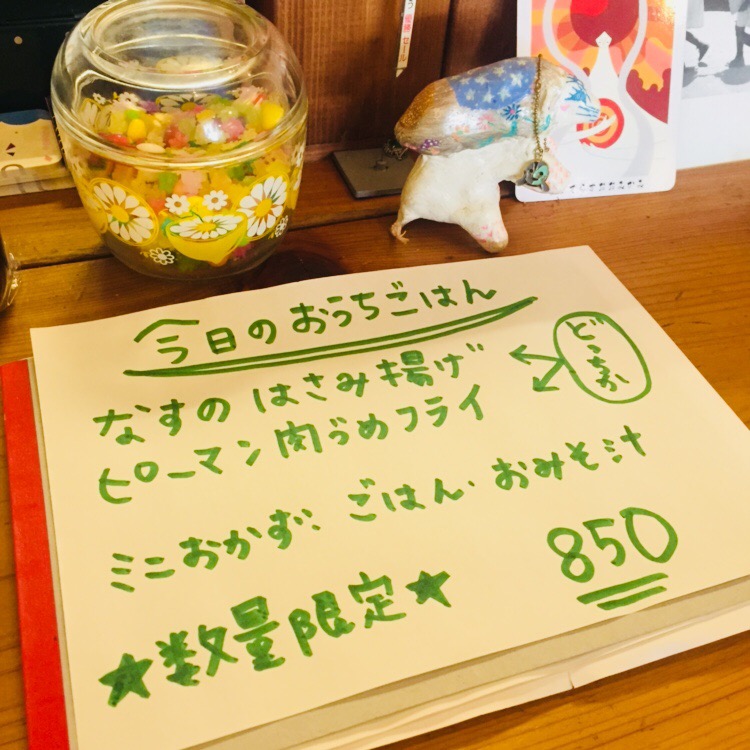 今日のおうちごはん
なすのはさみ揚げ
ピーマン肉づめフライ
どっちか
ミニおかず、ごはん、おみそ汁
850
★数量限定★